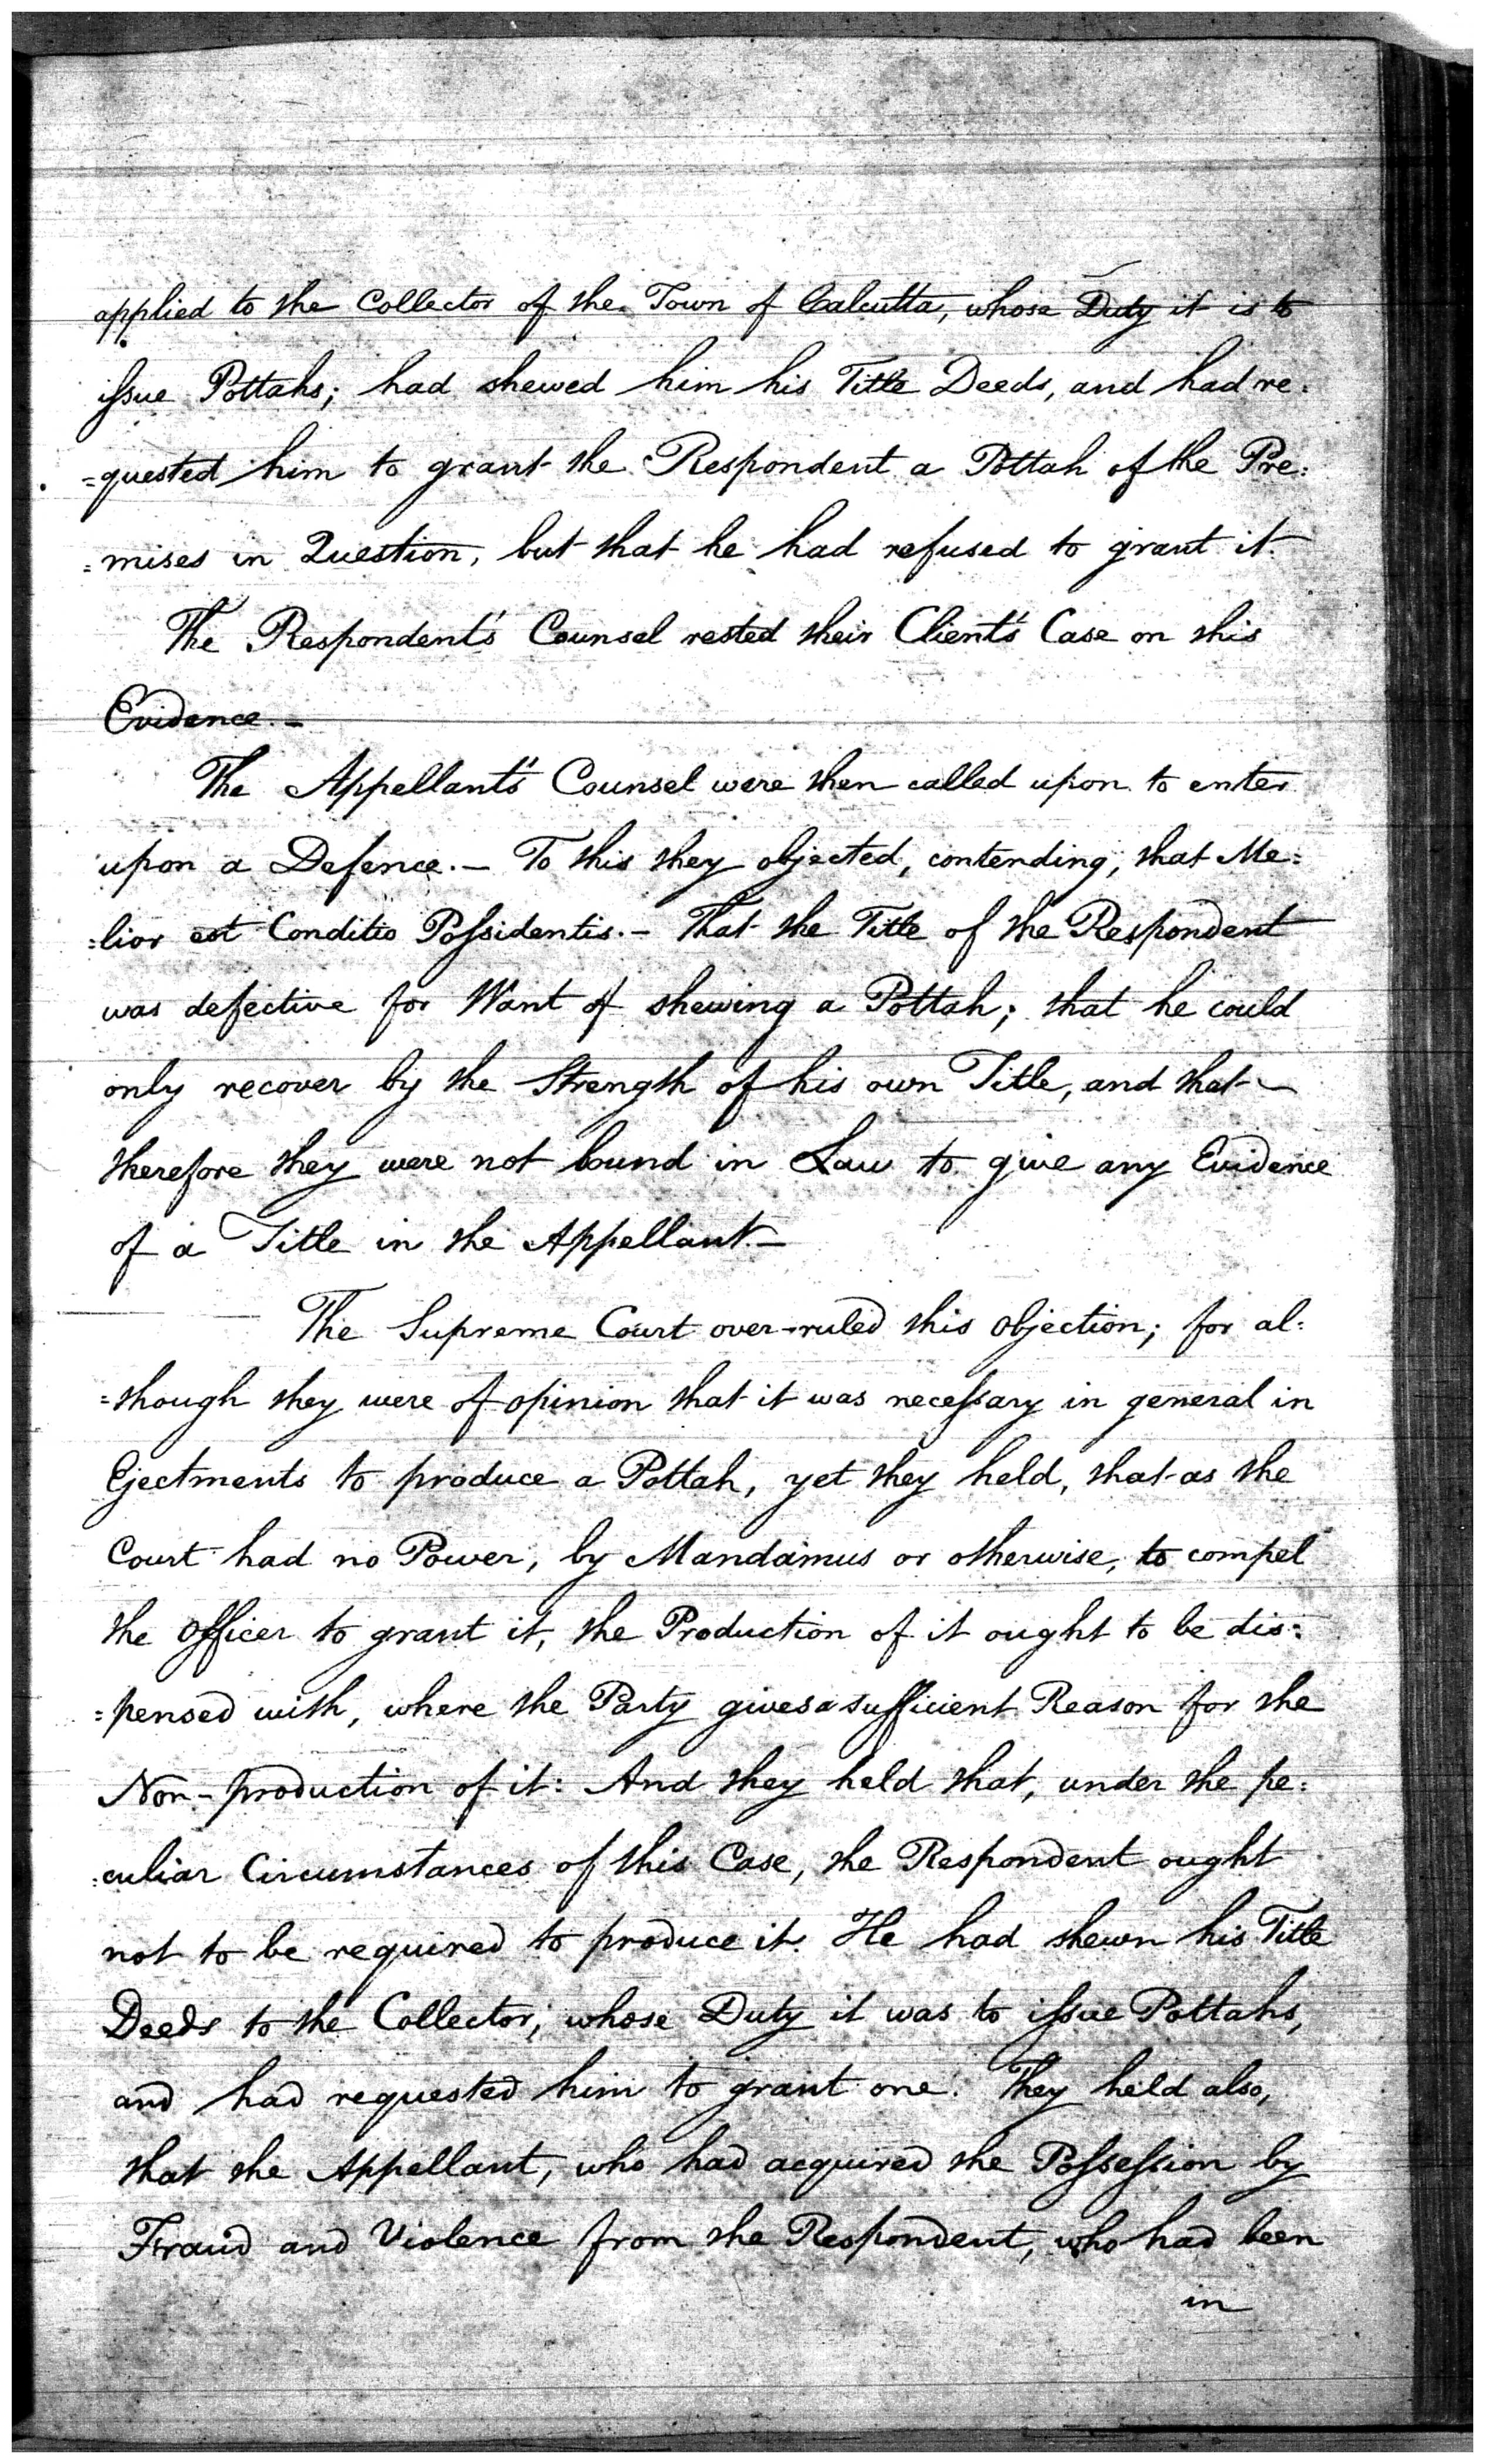 applied to the Collector of the Town of Calcutta, whose Duty it is to
ifsue Pottahs; had shewed him his Title Deeds, and had re:
=quested him to grant the Respondent a Pottah of the Pre:
=mises in Question, but that he had refused to grant it.
The Respondent's Counsel rested their Client's Case on this
Evidence.-
The Appellant's Counsel were then called upon to enter
upon a Defence.- To this they objected, contending, that Me:
:lior est Conditio Pofsidentis.- That the Title of the Respondent
was defective for Want of shewing a Pottah; that he could
only recover by the Strength of his own Title, and that
therefore they were not bound in Law to give any Evidence
of a Title in the Appellant.-
The Supreme Court over-ruled this Objection; for al:
=though they were of opinion that it was necefsary in general in
Ejectments to produce a Pottah, yet they held, that as the
Court had no Power, by Mandamus or otherwise, to compel
the Officer to grant it, the Production of it ought to be dis:
=pensed with, where the Party gives a sufficient Reason for the
Non-production of it: And they held that, under the pe:
:culiar Circumstances of this Case, the Respondent ought
not to be required to produce it. He had shewn his Title
Deeds to the Collector, whose Duty it was to ifsue Pottahs,
and had requested him to grant one. They held also,
that the Appellant, who had acquired the Pofsefsion by
Fraud and Violence from the Respondent, who had been
in